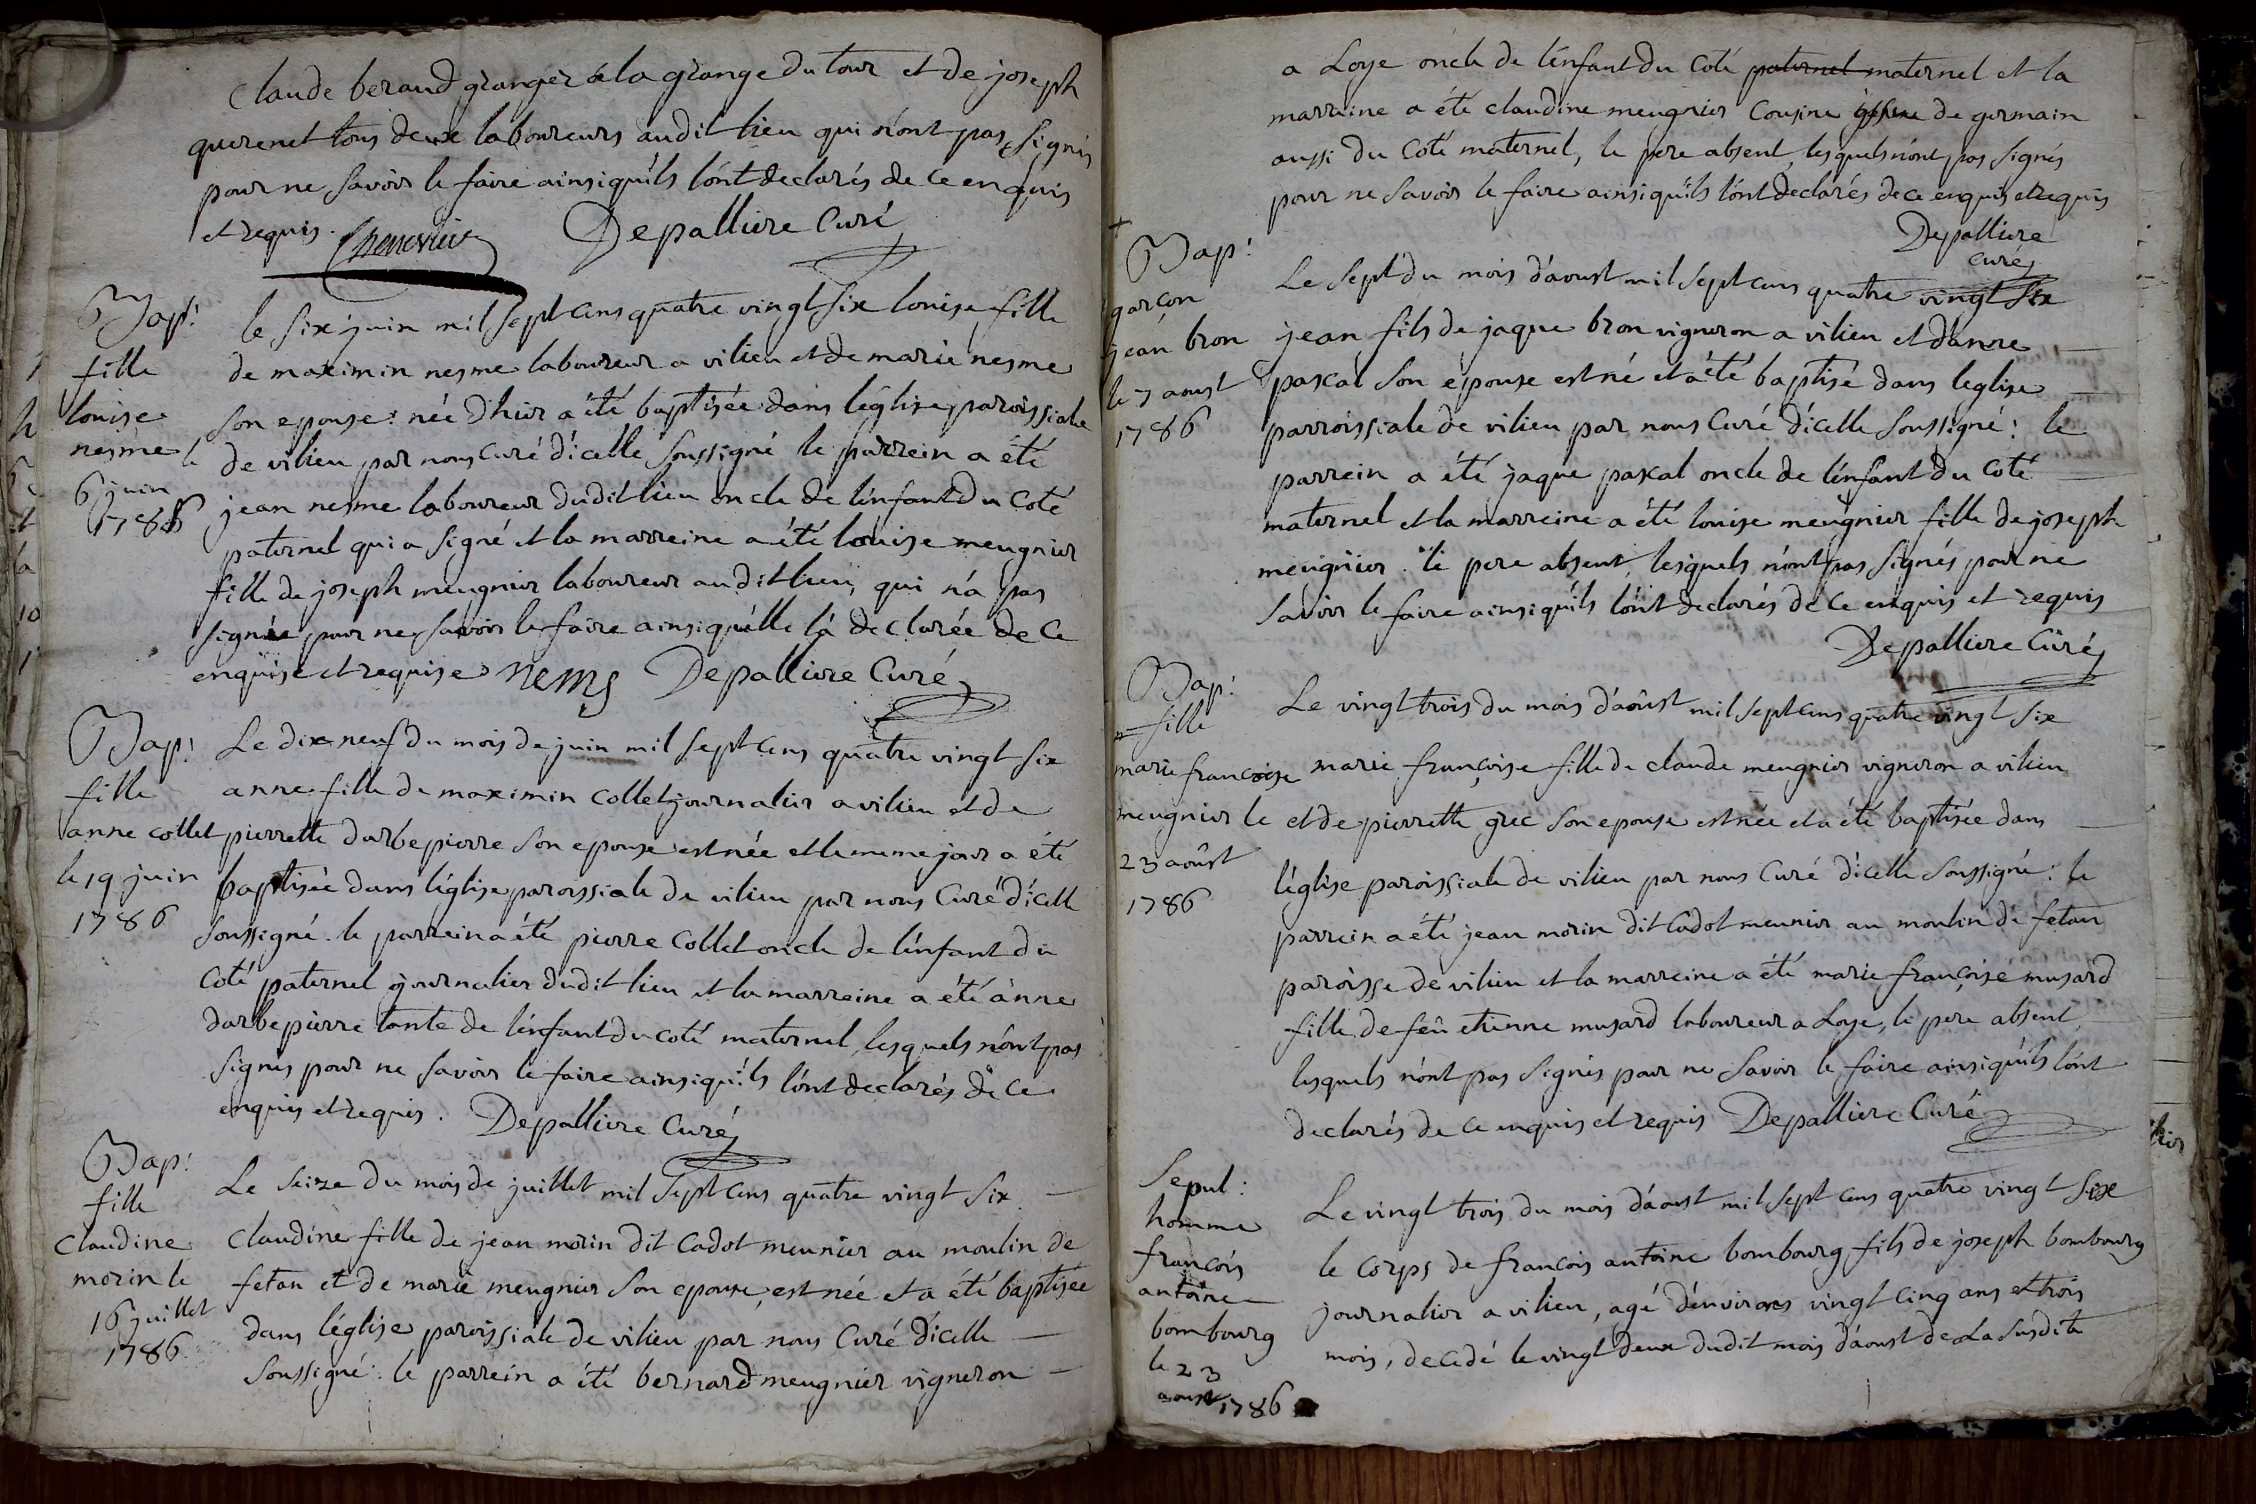 Claude beraud granger à la grange du tour et de joseph
querenet tous deux laboureurs audit lieu qui n'ont pas signés
pour ne savoir le faire ainsi qu'ils l'ont declarés de ce enquis
et requis. Depalliere Curé
Bap:
fille
louise
nesme le
6 juin
1786
le six juin mil sept cens quatre vingt six louise fille
de maximin nesme laboureur a vilieu et de marie nesme
son epouse: née d'hier a été baptisée dans l'église paroissiale
de vilieu par nous curé d'icelle soussigné le parrein a été
jean nesme laboureur dudit lieu oncle de l'enfant du coté
paternel qui a signé et la marreine a été louise meugnier
fille de joseph meugnier laboureur audit lieu, qui n'a pas
signée pour ne savoir le faire ainsi qu'elle l'a declarée de ce
enquise et requise nems Depalliere Curé
Bap:
fille
anne collet
le 19 juin
1786
Le dix neuf du mois de juin mil sept cens quatre vingt six
anne fille de maximin collet journalier a vilieu et de
pierrette darbepierre son epouse est née et le meme jour a été
baptisée dans l'église paroissiale de vilieu par nous Curé d'icelle
soussigné. le parrein a été pierre collet oncle de l'enfant du
coté paternel journalier dudit lieu et la marreine a été anne
darbepierre tante de l'enfant du coté maternel, lesquels n'ont pas
signés pour ne savoir le faire ainsi qu'ils l'ont declarés de ce
enquis et requis. Depalliere Curé
Bap:
fille
Claudine
morin le
16 juillet
1786
Le seize du mois de juillet mil sept cens quatre vingt six
Claudine fille de jean morin dit Cadot meunier au moulin de
fetan et de marie meugnier son epouse, est née et a été baptisée
dans l'église paroissiale de vilieu par nous Curé d'icelle
soussigné: le parrein a été bernard meugnier vigneron
a Loye oncle de l'enfant du coté paternel maternel et la
marreine a été claudine meugnier Cousine issue de germain
aussi du coté maternel, le pere absent, lesquels n'ont pas signés
pour ne savoir le faire ainsi qu'ils l'ont declarés de ce enquis et requis
Depalliere
Curé
Bap:
garcon
jean bron
le 7 aoust
1786
Le sept du mois d'aoust mil sept cens quatre vingt six
jean fils de jaque bron vigneron a vilieu et d'anne
pascal son epouse est né et a été baptisé dans leglise
parroissiale de vilieu par nous Curé d'icelle soussigné: le
parrein a été jaque pascal oncle de l'enfant du coté
maternel et la marreine a été louise meugnier fille de joseph
meugnier. le pere absent, lesquels n'ont pas signés pour ne
savoir le faire ainsi qu'ils l'ont declarés de ce enquis et requis
Depalliere Curé
Bap:
fille
marie francoise
meugnier le
23 aoust
1786
Le vingt trois du mois d'aoust mil sept cens quatre vingt six
marie françoise fille de claude meugnier vigneron a vilieu
et de pierrette grec son epouse est née et a été baptisée dans
l'église paroissiale de vilieu par nous Curé d'icelle soussigné: le
parrein a été jean morin dit Cadot meunier au moulin de fetan
paroisse de vilieu et la marreine a été marie françoise musard
fille de feu etienne musard laboureur a Loye, le pere absent,
lesquels n'ont pas signés pour ne savoir le faire ainsi qu'ils l'ont
declarés de ce enquis et requis Depalliere Curé
Sepul:
homme
françois
antoine
bombourg
le 23
aoust 1786
Le vingt trois du mois d'aoust mil sept cens quatre vingt six
le corps de françois antoine bombourg fils de joseph bombourg
journalier a vilieu, agé d'environs vingt cinq ans et trois
mois, decedé le vingt deux dudit mois d'aoust de La susdite